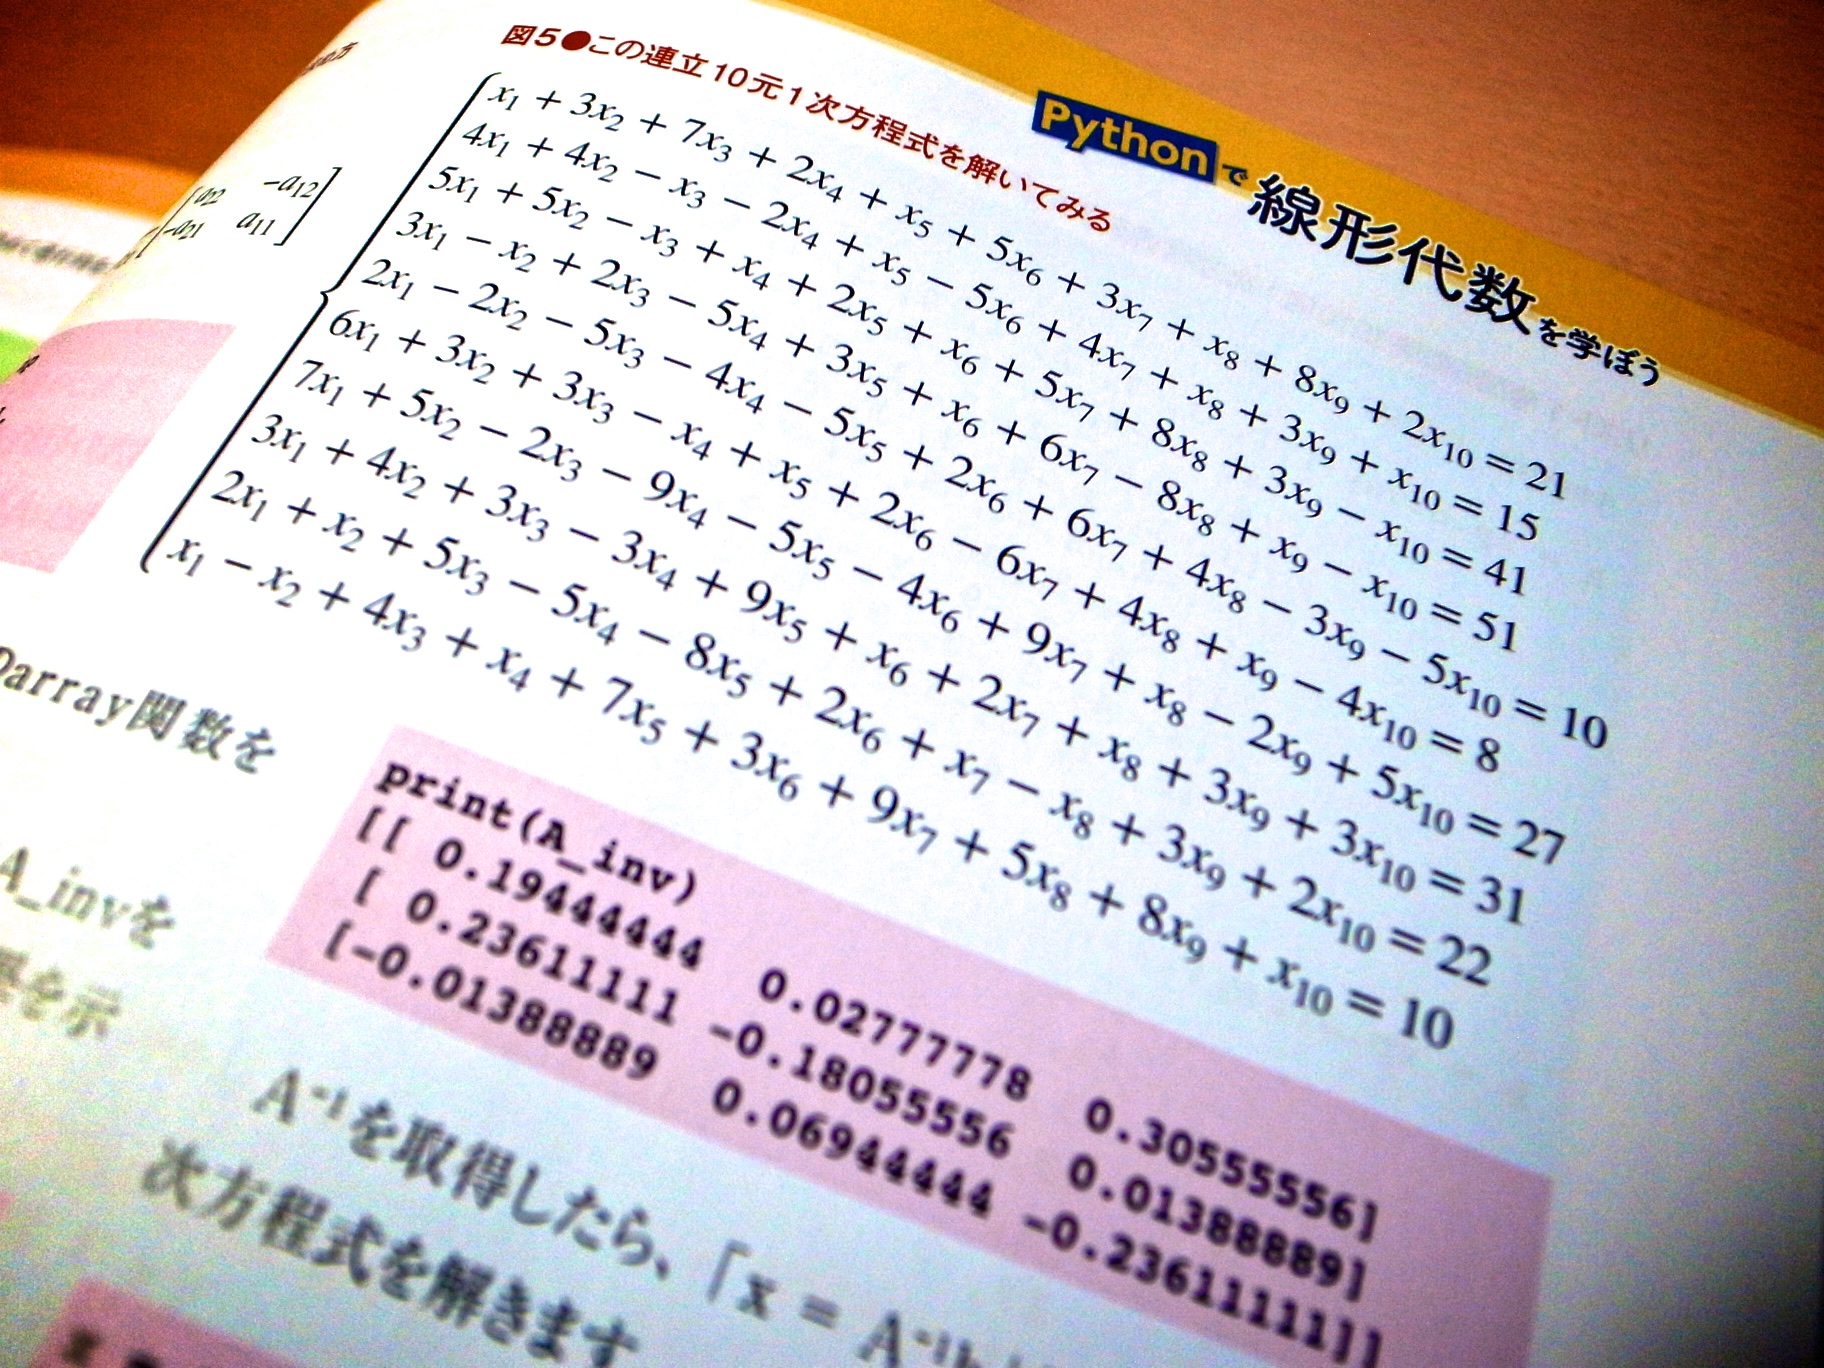 Pythonで線形代数を学ぼう
図5●この連立10元1次方程式を解いてみる
x₁ + 3x₂ + 7x₃ + 2x₄ + x₅ + 5x₆ + 3x₇ + x₈ + 8x₉ + 2x₁₀ = 21
4x₁ + 4x₂ − x₃ − 2x₄ + x₅ − 5x₆ + 4x₇ + x₈ + 3x₉ + x₁₀ = 15
5x₁ + 5x₂ − x₃ + x₄ + 2x₅ + x₆ + 5x₇ + 8x₈ + 3x₉ − x₁₀ = 41
3x₁ − x₂ + 2x₃ − 5x₄ + 3x₅ + x₆ + 6x₇ − 8x₈ + x₉ − x₁₀ = 51
2x₁ − 2x₂ − 5x₃ − 4x₄ − 5x₅ + 2x₆ + 6x₇ + 4x₈ − 3x₉ − 5x₁₀ = 10
6x₁ + 3x₂ + 3x₃ − x₄ + x₅ + 2x₆ − 6x₇ + 4x₈ + x₉ − 4x₁₀ = 8
7x₁ + 5x₂ − 2x₃ − 9x₄ − 5x₅ − 4x₆ + 9x₇ + x₈ − 2x₉ + 5x₁₀ = 27
3x₁ + 4x₂ + 3x₃ − 3x₄ + 9x₅ + x₆ + 2x₇ + x₈ + 3x₉ + 3x₁₀ = 31
2x₁ + x₂ + 5x₃ − 5x₄ − 8x₅ + 2x₆ + x₇ − x₈ + 3x₉ + 2x₁₀ = 22
x₁ − x₂ + 4x₃ + x₄ + 7x₅ + 3x₆ + 9x₇ + 5x₈ + 8x₉ + x₁₀ = 10
a₂₂ −a₁₂
−a₂₁ a₁₁
array関数を
A_invを
を示
print(A_inv)
[[ 0.19444444 0.02777778 0.30555556]
[ 0.23611111 -0.18055556 0.01388889]
[-0.01388889 0.06944444 -0.23611111]]
A⁻¹を取得したら、「x = A⁻¹b
次方程式を解きます